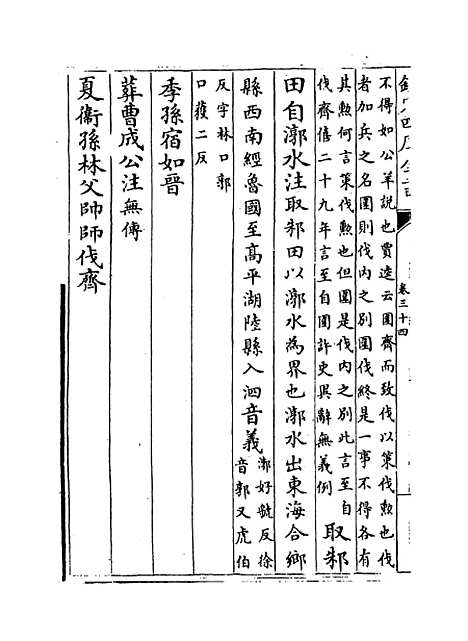 欽定四庫全書
卷三十四
不得如公羊說也賈逵云圍齊而致伐以策伐勲也伐
者加兵之名圍則伐內之別圍伐終是一事不得各有
其勲何言策伐勲也但圍是伐內之別此言至自
伐齊僖二十九年言至自圍許史異辭無義例
取邾
田自漷水注取邾田以漷水為界也漷水出東海合鄉
縣西南經魯國至高平湖陸縣入泗音義
漷好虢反徐
音郭又虎伯
反字林口郭
口獲二反
季孫宿如晉
葬曹成公注無傳
夏衛孫林父帥師伐齊